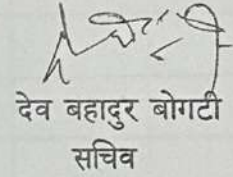 देव बहादुर बोगटी
सचिव